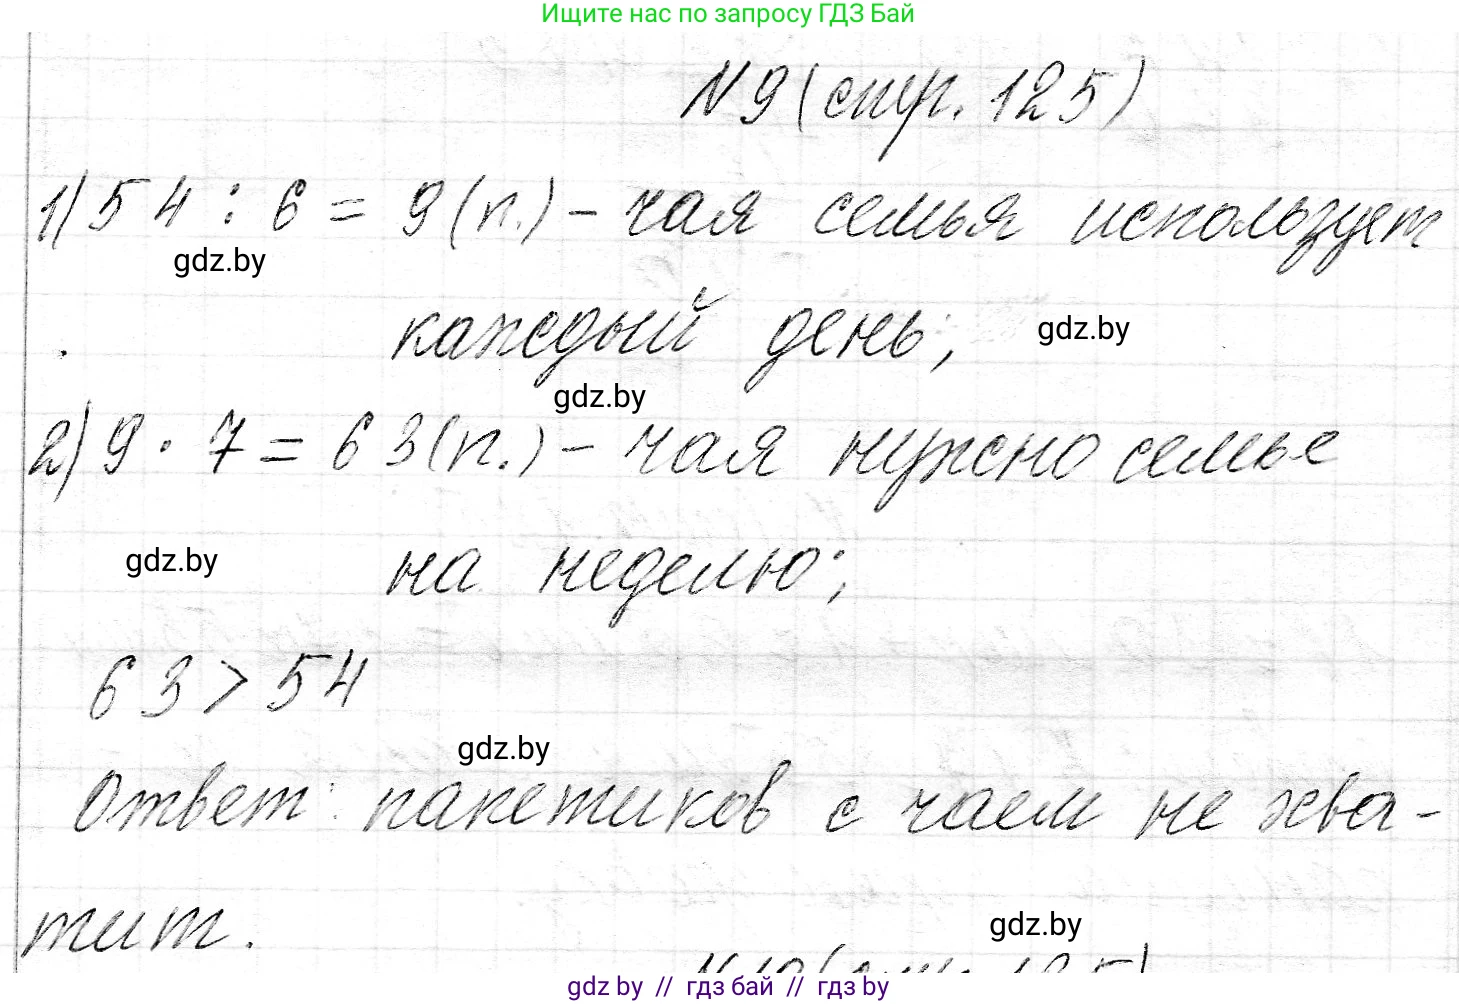 Ищите нас по запросу ГДЗ Бай
N9 (стр. 125)
1) 54 : 6 = 9 (п.) - чая семья использует
gdz.by
каждый день; gdz.by
gdz.by
2) 9 · 7 = 63 (п.) - чая нужно семье
gdz.by на неделю;
63 > 54
gdz.by
Ответ: пакетиков с чаем не хва-
тит. gdz.by
N10 (стр. 125)
gdz.by // гдз бай // гдз by